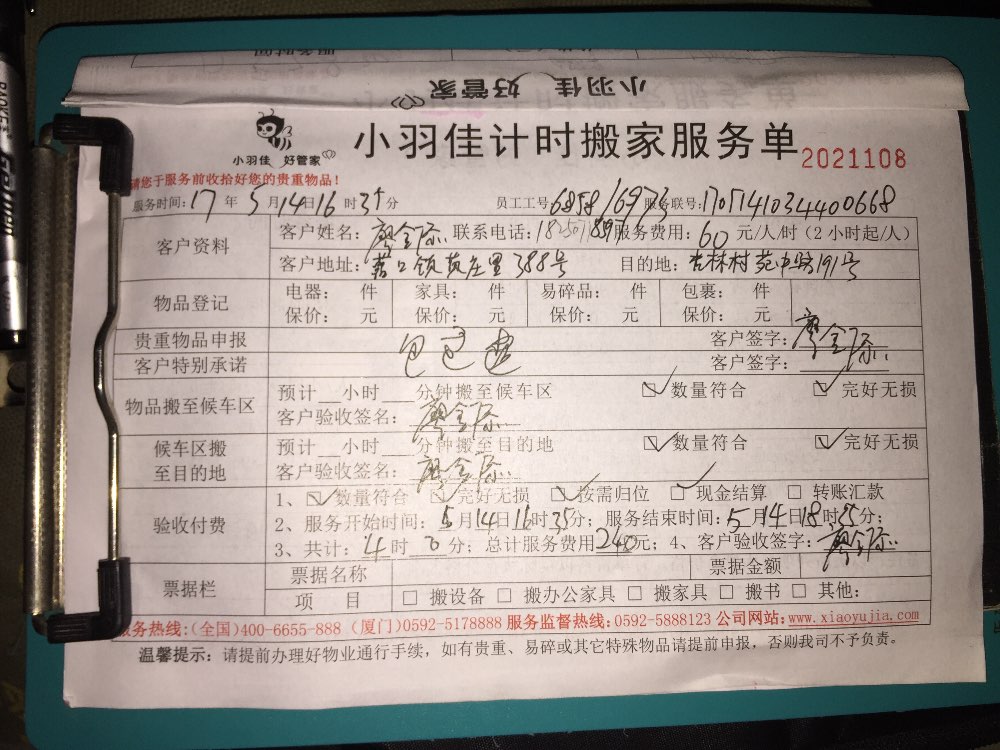 小羽佳 好管家
小羽佳 好管家
小羽佳计时搬家服务单
2021108
请您于服务前收拾好您的贵重物品!
服务时间:17年5月14日16时35分 员工工号:6858/6973 服务联号:170514103440668
客户资料
客户姓名: 联系电话: 服务费用:60元/人/时(2小时起/人)
客户地址: 388号 目的地:杏林村苑中路191号
物品登记
电器: 件 家具: 件 易碎品: 件 包裹: 件
保价: 元 保价: 元 保价: 元 保价: 元
贵重物品申报 客户签字:
客户特别承诺 客户签字:
物品搬至候车区
预计__小时__分钟搬至候车区 ☑数量符合 ☑完好无损
客户验收签名:
候车区搬至目的地
预计__小时__分钟搬至目的地 ☑数量符合 ☑完好无损
客户验收签名:
验收付费
1、☑数量符合 ☑完好无损 ☑按需归位 ☑现金结算 □转账汇款
2、服务开始时间:5月14日16时35分;服务结束时间:5月14日18时35分;
3、共计:4时0分;总计服务费用240元;4、客户验收签字:
票据栏
票据名称 票据金额
项 目 □搬设备 □搬办公家具 □搬家具 □搬书 □其他:
服务热线:(全国)400-6655-888 (厦门)0592-5178888 服务监督热线:0592-5888123 公司网站:www.xiaoyujia.com
温馨提示:请提前办理好物业通行手续,如有贵重、易碎或其它特殊物品请提前申报,否则我司不予负责。